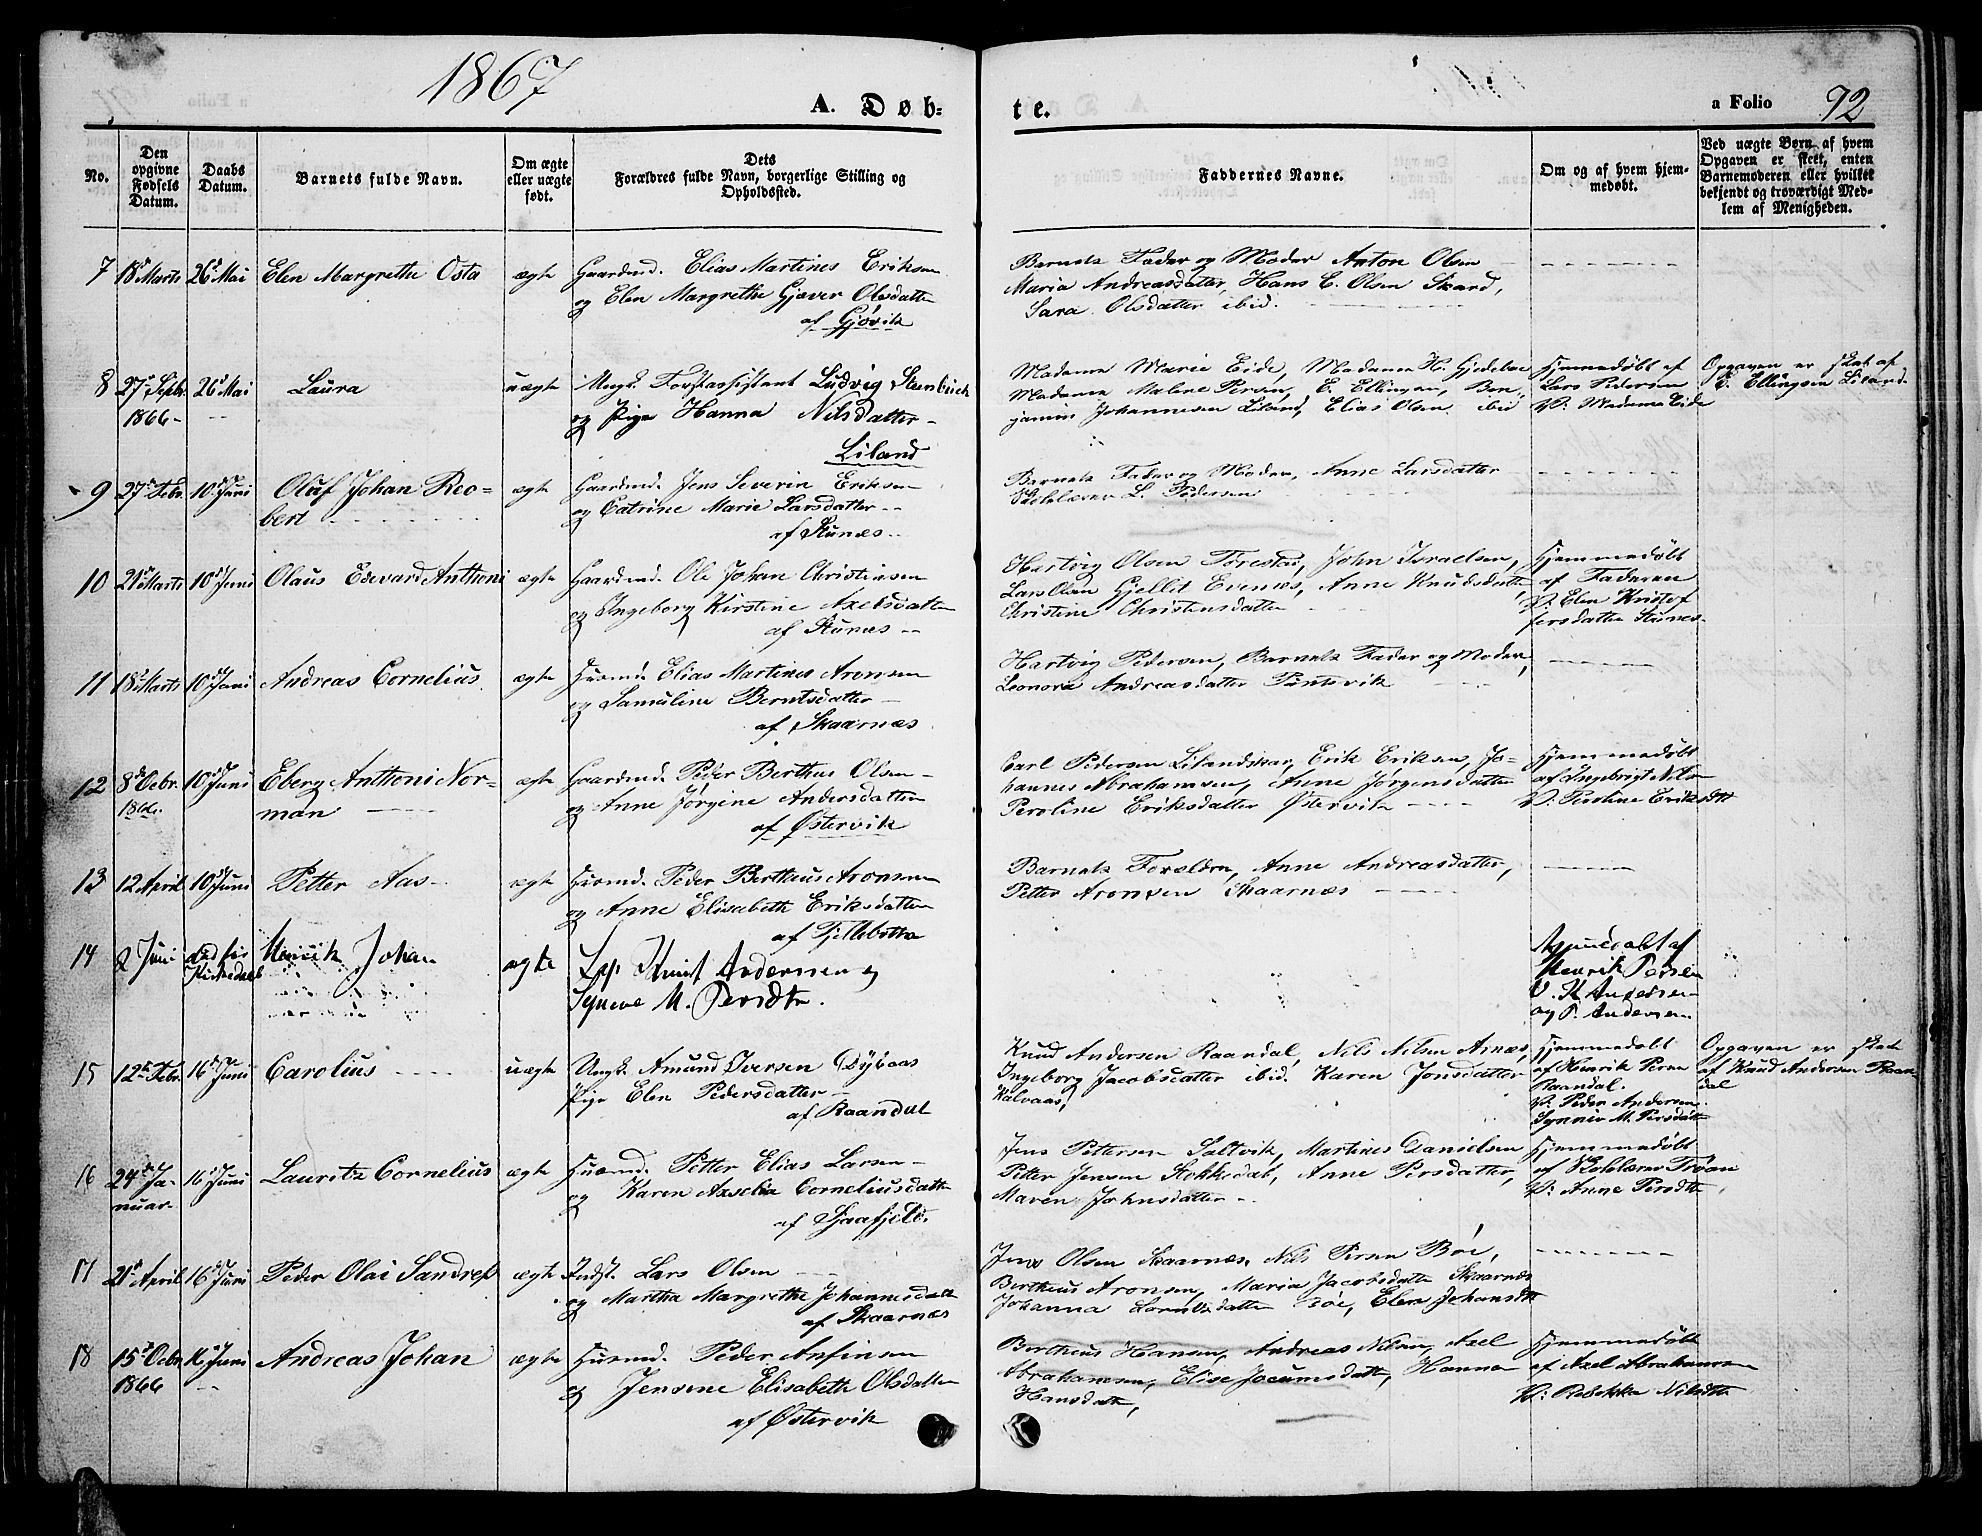 1867
A. Døb=
te.
a Folio 92
No.
Den opgivne Fødsels Datum.
Daabs Datum.
Barnets fulde Navn.
Om ægte eller uægte født.
Dets Forældres fulde Navn, borgerlige Stilling og Opholdssted.
Faddernes Navne.
Om og af hvem hjemmedøbt.
Ved uægte Børn af hvem Opgaven er skeet, enten Barnemoderen eller hvilket bekjendt og troværdigt Medlem af Menigheden.
7 18d Marts 26d Mai Elen Margrethe Osta ægte Gaardmd. Elias Martines Eriksen
og Elen Margrethe Gjæver Olsdatter
af Gjøvik
Barnets Fader og Moder Anton Olsen
Maria Andreasdatter, Hans E. Olsen Skard,
Sara Olsdatter ibid.
8 27d Septr. 26d Mai Laura uægte Ungk. Forstassistent Ludvig Steenbuck
1866 - og Pige Hanna Nilsdatter -
Liland
Madame Marie Eide, Madame H. Gjedeboe
Madame Malene Persen, E. Ellingsen, Ben-
jamin Johannesen Liland, Elias Olsen ibid
Hjemmedøbt af
Lars Pedersen
V: Madame Eide
Opgaven er skeet af
E. Ellingsen Liland.
9 27d Febr. 10d Juni Oluf Johan Reo= ægte Gaardmd. Jens Severin Eriksen
bert og Catrine Marie Larsdatter
af Stunes
Barnets Fader og Moder, Anne Larsdatter
Skolelærer L. Pedersen
10 21d Marts 10d Juni Olaus Edevard Anthoni ægte Gaardmd. Ole Johan Christensen
og Ingeborg Kirstine Axelsdatter
af Stunæs
Hartvig Olsen Forestad, John Israelsen,
Lars Olsen Gjellet Evenæs, Anne Knudsdatter
Christine Christensdatter
Hjemmedøbt
af Faderen
V: Elen Kristof
fersdatter Stunes
11 18d Marts 10d Juni Andreas Cornelius ægte Husmd. Elias Martines Aronsen
og Samuline Berntsdatter
af Skaarnæs
Hartvig Pedersen, Barnets Fader og Moder,
Leonora Andreasdatter
12 8d Octbr. 10d Juni Eberg Anthoni Nor= ægte Gaardmd. Peder Bertheus Olsen
1866. man og Anne Jørgine Andersdatter
af Østervik
Carl Pedersen Lilandskar, Erik Eriksen, Jo-
hannes Abrahamsen, Anne Jørgensdatter
Peroline Eriksdatter Østervik
Hjemmedøbt
af Ingebrigt Nils
V: Peroline Eriksdtt
13 12 April 10d Juni Petter Aas ægte Husmd. Peder Bertheus Aronsen
og Anne Elisabeth Eriksdatter
af Fjeldbotten
Barnets Forældre, Anne Andreasdatter,
Petter Aronsen Skaarnæs
14 2 Juni død før Henrik Johan ægte Knut Andersen og
Kirkedaab Synneve M. Persdtr.
Hjemmedøbt af
Henrik Persen
V. K. Andersen
og P. Andersen
15 12te Febr. 16d Juni Carolius uægte Ungk. Amund Iversen Dybaas
Pige Elen Pedersdatter
af Raandal
Knud Andersen Raandal, Nils Nilsen Arnæs,
Ingeborg Jacobsdatter ibid. Karen Jonsdatter
Kalvaas,
Hjemmedøbt
af Henrik Persen
Raandal.
V: Peder Andersen
Synnev M. Persdtt
Opgaven er skeet
af Knud Andersen Raan
dal
16 24d Ja- 16d Juni Lauritz Cornelius ægte Husmd. Petter Elias Larsen
nuar og Karen Axselia Corneliusdatter
af Sjaafjeld.
Jens Pettersen Saltvik, Martines Danielsen
Petter Jensen Stokkedal, Anne Persdatter,
Maren Johnsdatter
Hjemmedøbt
af Skolelærer Troan
V: Anne Persdtt
17 21d April 16d Juni Peder Olai Sandrep ægte Indst. Lars Olsen
og Martha Margrethe Johannesdatt
af Skaarnæs
Jens Olsen Skaarnæs, Nils Persen Bøe,
Bertheus Aronsen, Maria Jacobsdatt Skaarnæs
Johanna Bøe, Elen Johansdtt
18 15d Octbr. 16d Juni Andreas Johan ægte Husmd. Peder Anfinsen
1866 og Jensine Elisabeth Olsdatter
af Østervik
Bertheus Hansen, Andreas Nilsen, Axel
Abrahamsen, Elise Jocumsdatt, Hanna
Hansdatt,
Hjemmedøbt
af Axel Abrahamsen
V: Rebekka Nilsdtt